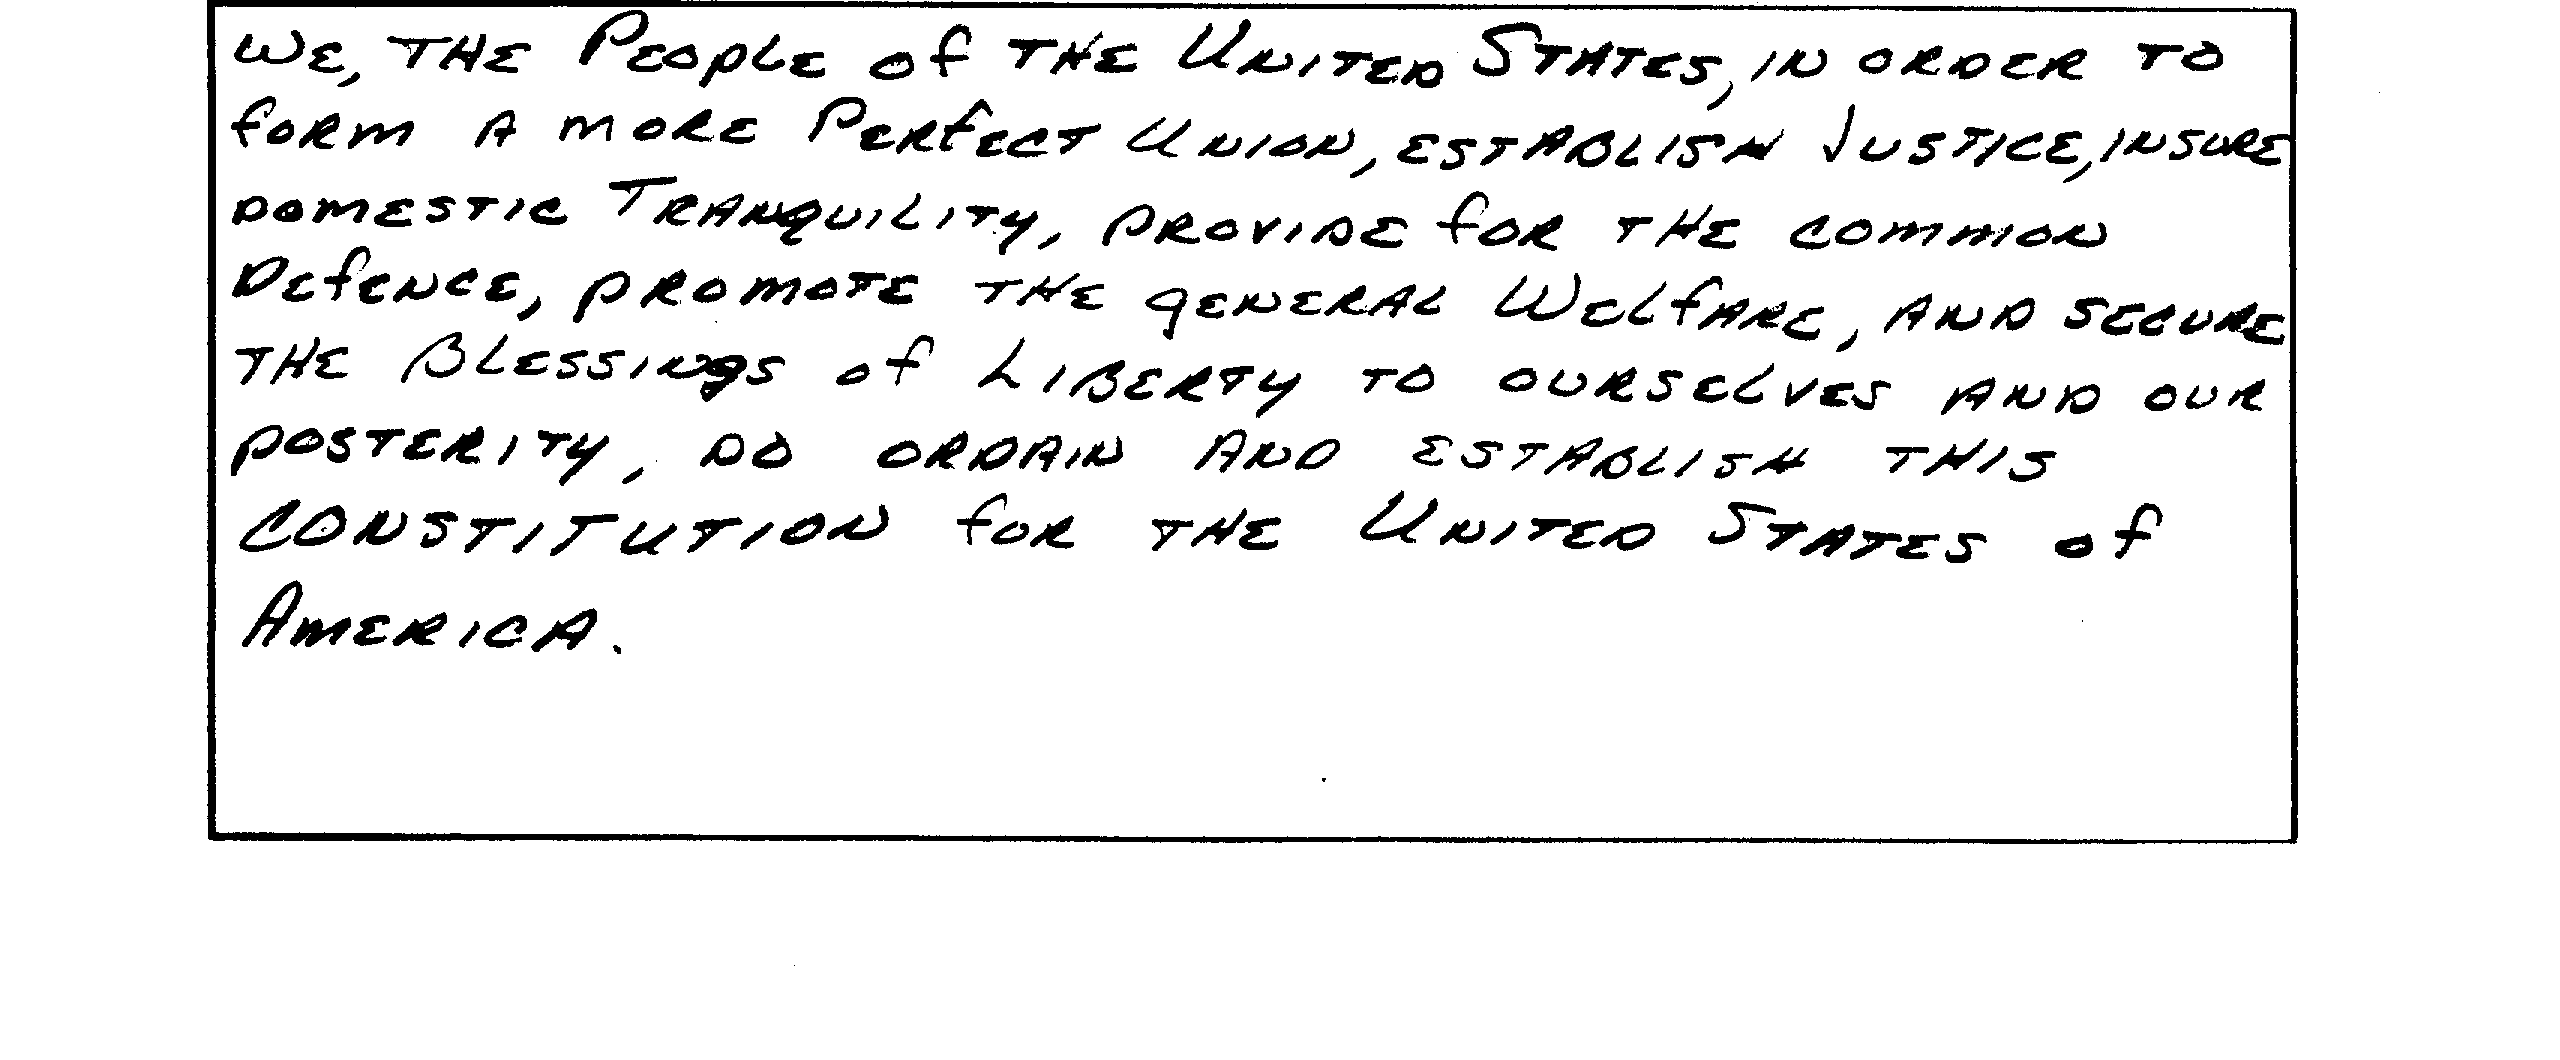 We, the People of the United States, in order to
form a more Perfect Union, establish Justice, insure
domestic Tranquility, provide for the common
Defence, promote the general Welfare, and secure
the Blessings of Liberty to ourselves and our
posterity, do ordain and establish this
Constitution for the United States of
America.